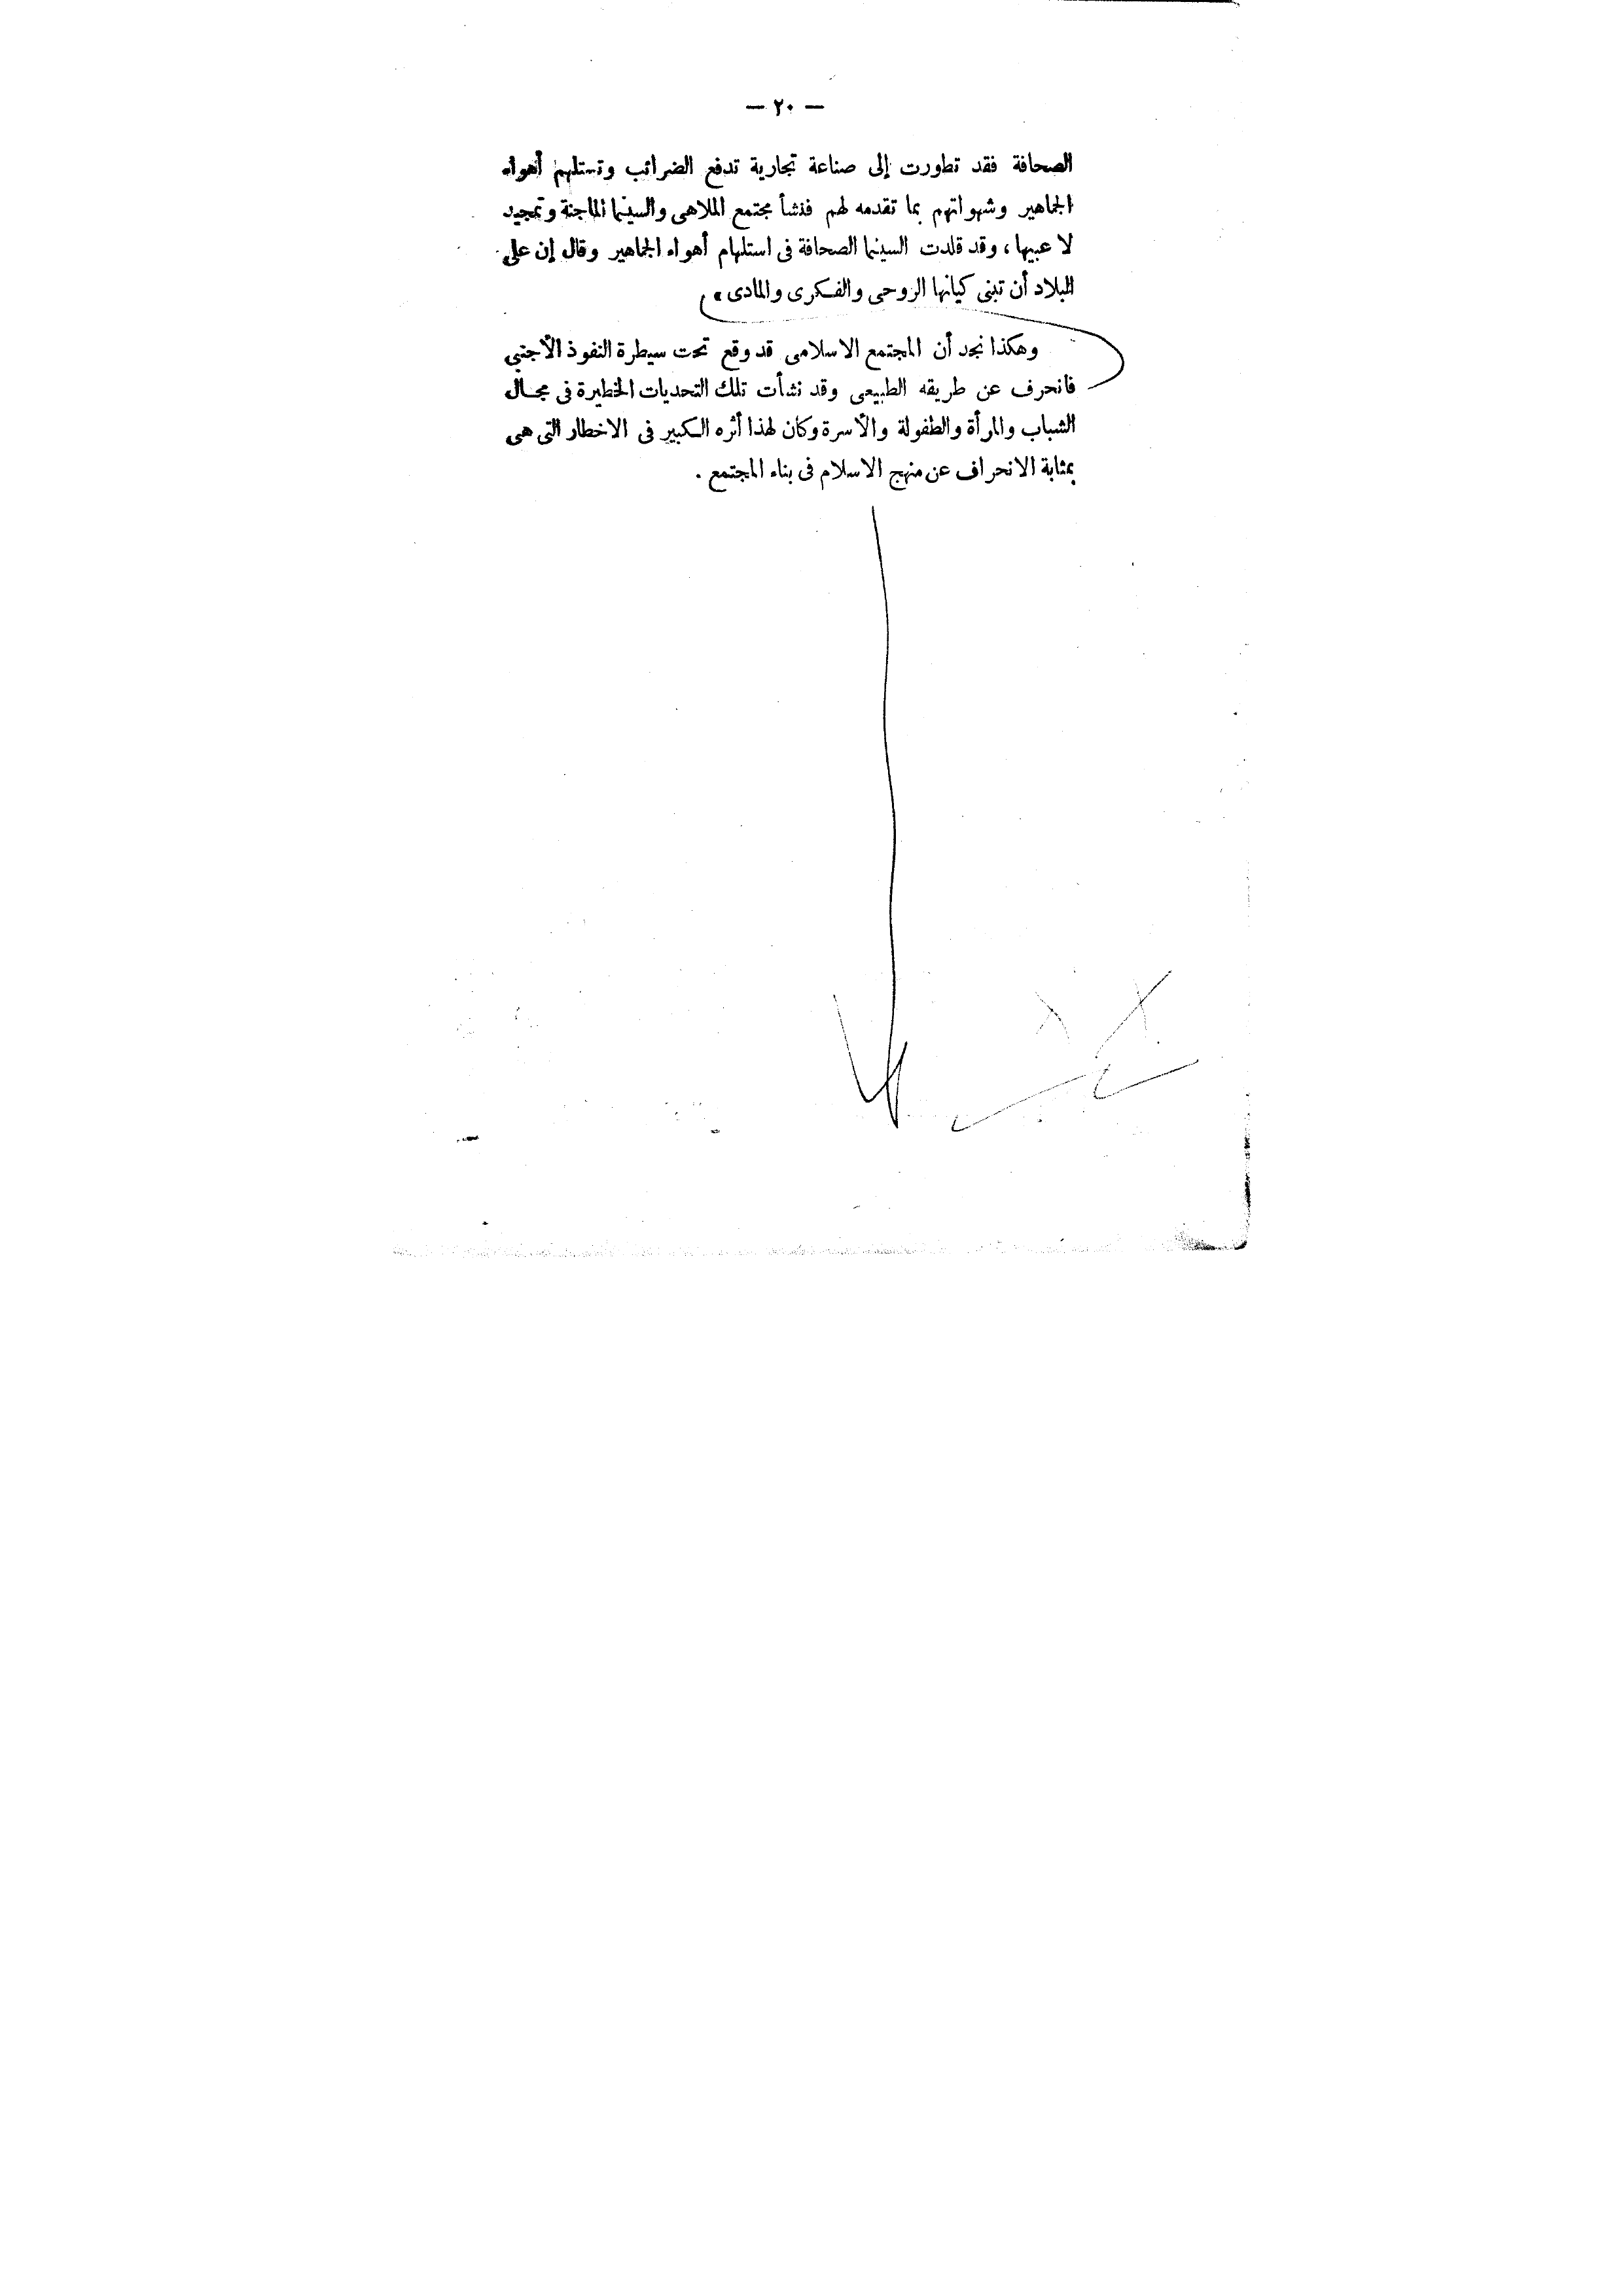 — ٢٠ —
الصحافة فقد تطورت إلى صناعة تجارية تدفع الضرائب وتستلهم أهواء
الجماهير وشهواتهم بما تقدمه لهم فنشأ مجتمع الملاهى والسينما الماجنة وتمجيد
لاعبيها ، وقد قلدت السينما الصحافة فى استلهام أهواء الجماهير وقال إن على
البلاد أن تبنى كيانها الروحى والفكرى والمادى »
وهكذا نجد أن المجتمع الاسلامى قد وقع تحت سيطرة النفوذ الأجنبى
فانحرف عن طريقه الطبيعى وقد نشأت تلك التحديات الخطيرة فى مجال
الشباب والمرأة والطفولة والأسرة وكان لهذا أثره الكبير فى الاخطار التى هى
بمثابة الانحراف عن منهج الاسلام فى بناء المجتمع .